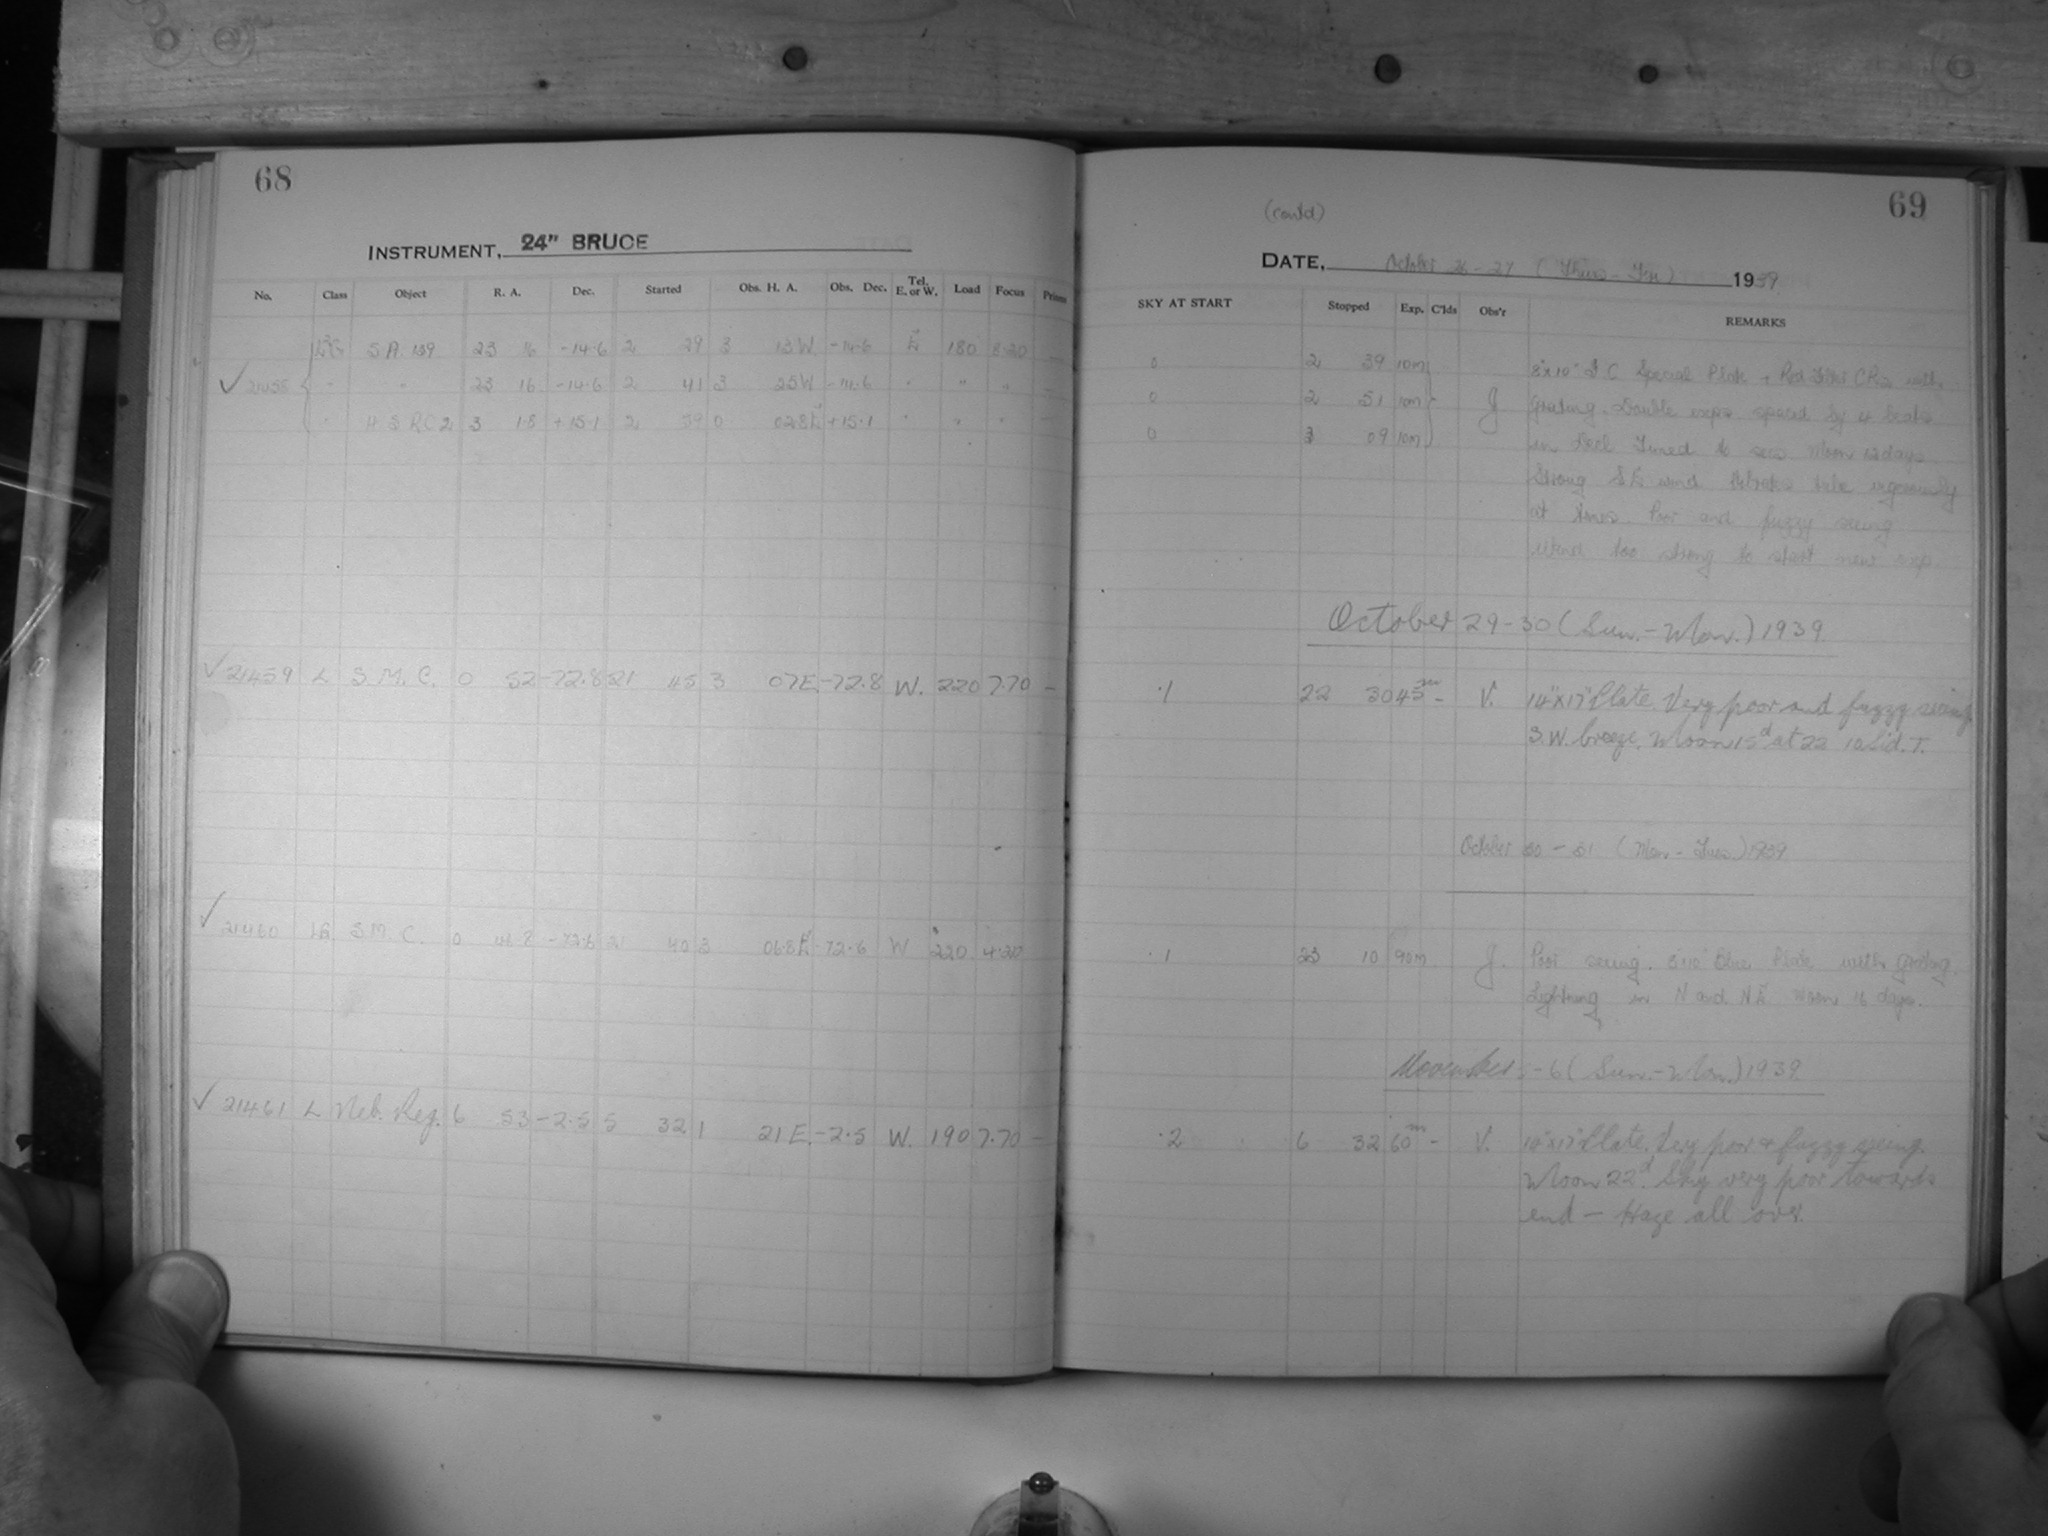 68
INSTRUMENT, 24" BRUCE
No. Class Object R. A. Dec. Started Obs. H. A. Obs. Dec. Tel. E. or W. Load Focus Prism
S.A. 139 23 16 -14.6 2 29 3 13W. -14.6 E 180 8.20 —
✓ 21458 " " 23 16 -14.6 2 41 3 25W -14.6 " " " —
" H S P.C 2 3 1.8 +15.1 2 59 0 02.8E +15.1 " " " —
✓ 21459 L S.M.C. 0 52 -72.8 21 45 3 07E. -72.8 W. 220 7.70 —
✓ 21460 S.M.C. 0 48.8 -72.6 21 40 3 06.8E -72.6 W 220 4.20
✓ 21461 L Neb. Reg. 6 53 -2.5 5 32 1 21E. -2.5 W. 190 7.70 —
69
(contd)
DATE, October 26-27 (Thurs-Fri) 1939
SKY AT START Stopped Exp. C'lds Obs'r REMARKS
0 2 39 10m 8"x10" I C Special Plate + Red Filter with
0 2 51 10m J Grating. Double exps. spaced by 4 beats
0 3 09 10m in Decl. Moon 12 days
Strong SE wind tube vigorously
at times. Poor and fuzzy seeing
Wind too strong to start new exp.
October 29-30 (Sun.-Mon.) 1939.
.1 22 30 45m - V. 14"x17" Plate. Very poor and fuzzy seeing
S.W. breeze. Moon 15d at 22 10 Sid. T.
October 30-31 (Mon-Tues.) 1939
.1 23 10 90m J. Poor seeing. 8x10 Blue Plate with Grating.
Lightning in N and NE. Moon 16 days.
November -6 (Sun.-Mon.) 1939.
.2 6 32 60m - V. Plate. Very poor & fuzzy seeing.
Moon 22d. Sky very poor towards
end — Haze all over.